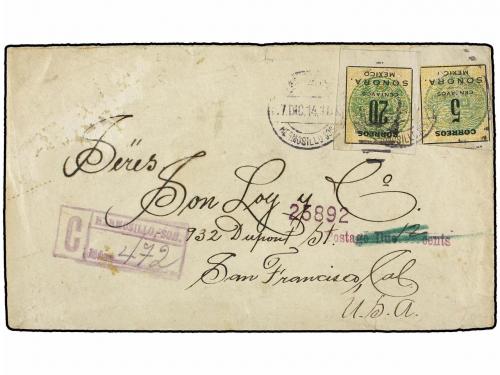 SONORA.
MEXICO
CENTAVOS
20
CORREOS
SONORA.
MEXICO
CENTAVOS
5
CORREOS
7.DIC.14
HERMOSILLO SON
Son Loy y Cº.
25892
932 Dupont St
Postage Due 12 cents
San Francisco, Cal
U.S.A.
C
HERMOSILLO, SON.
472